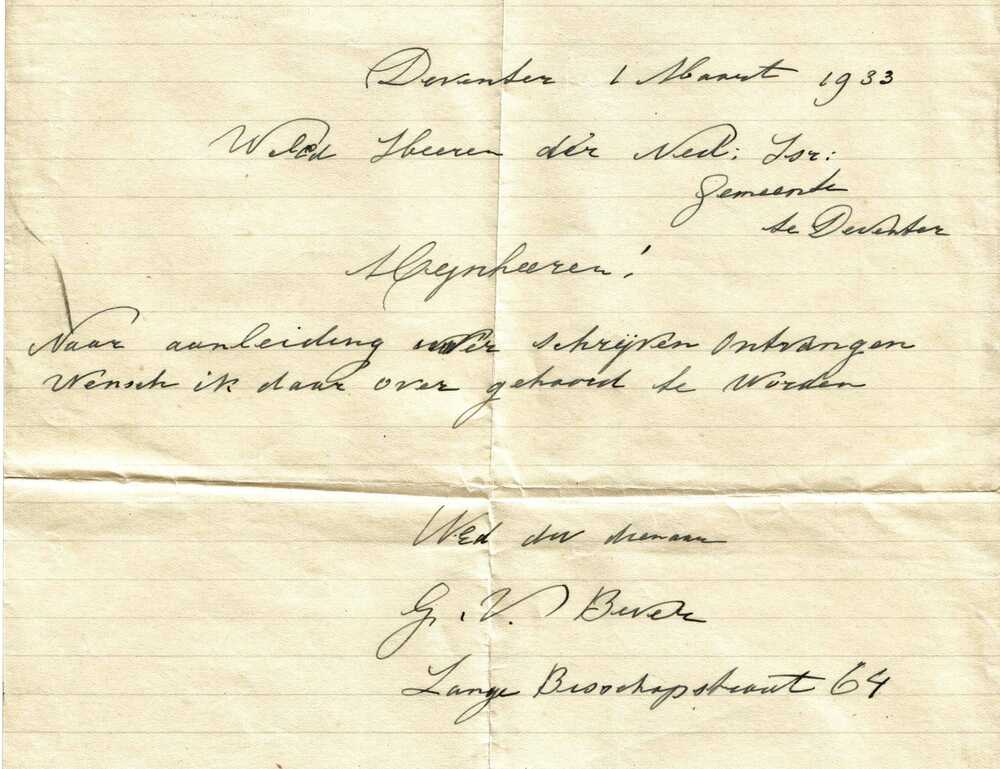 Deventer 1 Maart 1933
WelEd Heeren der Ned: Isr:
Gemeente
te Deventer
Mijnheeren!
Naar aanleiding uwer schrijven ontvangen
Wensch ik daar over gehoord te worden
WEd dw dienaar
G. V. Bever
Lange Bisschopstraat 64